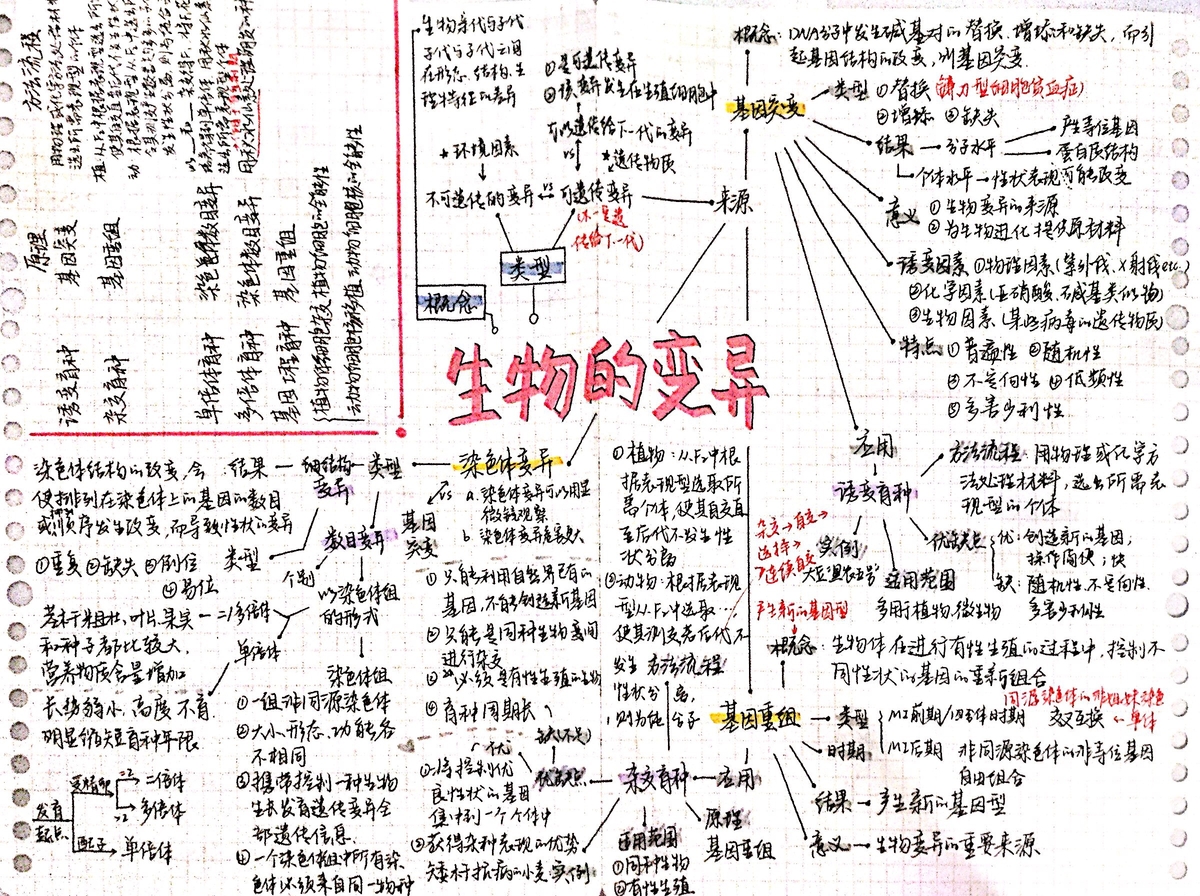 生物的变异
概念
生物亲代与子代
子代与子代之间
在形态、结构、生
理特征的差异
类型
不可遗传的变异
vs
可遗传变异
*环境因素
*遗传物质
(不一定遗
传给下一代)
①是可遗传变异
可以遗传给下一代的变异
vs
来源
基因突变
概念:DNA分子中发生碱基对的替换、增添和缺失,而引
起基因结构的改变,叫基因突变
类型 ①替换(镰刀型细胞贫血症)
②增添 ③缺失
结果
分子水平
产生等位基因
蛋白质结构
个体水平→性状表现可能改变
意义 ①生物变异的来源
②为生物进化提供原材料
诱变因素 ①物理因素(紫外线、X射线etc.)
②化学因素(亚硝酸、碱基类似物)
③生物因素(某些病毒的遗传物质)
特点 ①普遍性 ②随机性
③不定向性 ④低频性
⑤多害少利性
应用
诱变育种
方法流程 用物理或化学方
法处理材料,选出所需表
现型的个体
优缺点
优:创造新的基因,
操作简便;快
缺:随机性、不定向性、
多害少利性
适用范围
多用于植物、微生物
实例
大豆"黑农五号"
基因重组
产生新的基因型
概念:生物体在进行有性生殖的过程中,控制不
同性状的基因的重新组合
类型
时期
MI前期/四分体时期 交叉互换
同源染色体的非姐妹染色
单体
MI后期 非同源染色体的非等位基因
自由组合
结果→产生新的基因型
意义→生物变异的重要来源
应用
杂交育种
原理
基因重组
适用范围
①同种生物
②有性生殖
方法流程
①植物:从F₂中根
据表现型选取所
需个体,使其自交直
至后代不发生性
状分离
②动物:根据表现
型从F₂中选取…
使其测交若后代不
发生
性状分离,
则为纯合子
杂交→自交→
选择→
连续自交
优缺点
优
①将控制优
良性状的基因
集中到一个个体中
②获得杂种表现的优势
缺(不足)
①只能利用自然界已有的
基因,不能创造新基因
②只能是同种生物之间
进行杂交
③必须具有性生殖的生物
④育种周期长
矮杆抗病的小麦 实例
染色体变异
vs
基因
突变
a.染色体变异可以用显
微镜观察
b.染色体变异危害更大
类型
结构
变异
结果
染色体结构的改变,会
使排列在染色体上的基因的数目
或顺序发生改变,而导致性状的变异
类型
①重复②缺失③倒位
④易位
数目变异
个别
以染色体组
的形式
二/多倍体
茎秆粗壮,叶片、果实
和种子都比较大,
营养物质含量增加
单倍体
长势弱小,高度不育
明显缩短育种年限
染色体组
①一组非同源染色体
②大小、形态、功能各
不相同
③携带控制一种生物
生长发育遗传变异全
部遗传信息
④一个染色体组中所有染
色体必须来自同一物种
发育
起点
受精卵
二倍体
多倍体
配子
单倍体
方法流程
原理
诱变育种
基因突变
杂交育种
基因重组
单倍体育种
染色体数目变异
多倍体育种
染色体数目变异
基因工程育种
基因重组
植物体细胞杂交 植物细胞的全能性
动物细胞核移植 动物细胞核的全能性